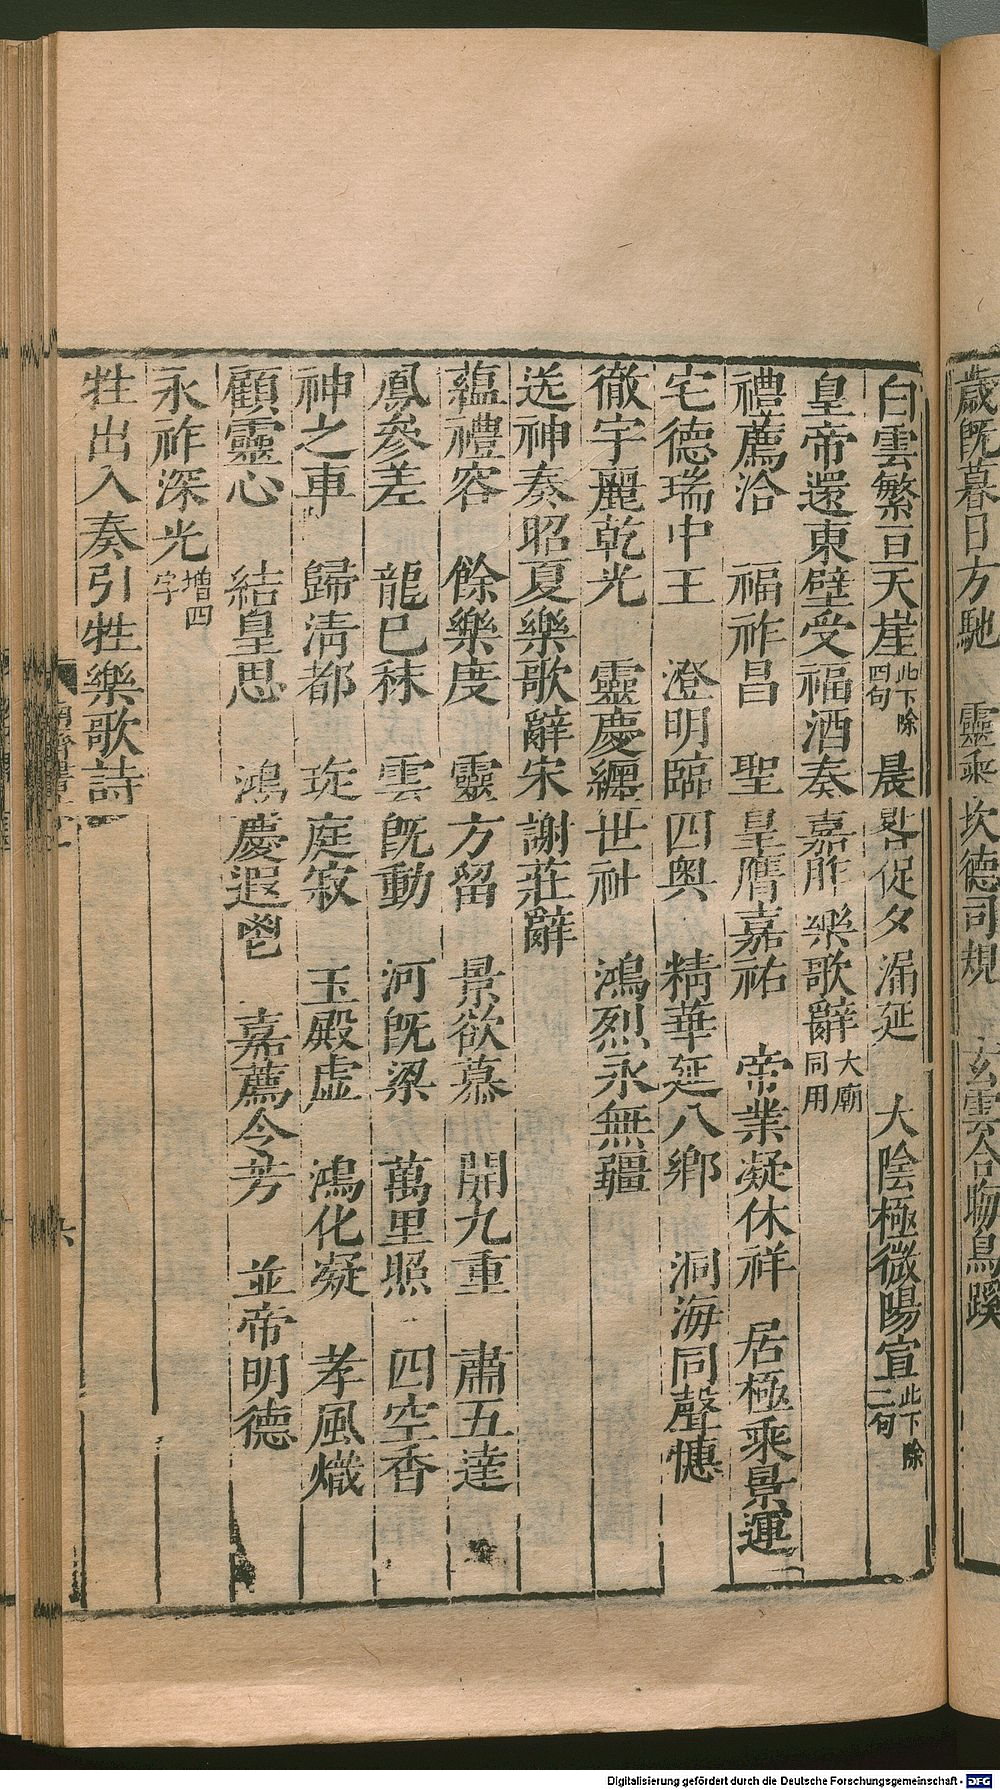 歲既暮日方馳　靈乘坎德司規　玄雲合晦鳥蹊
白雲繁亘天崖此下除四句　晨晷促夕漏延　大陰極微陽宣此下除二句
皇帝還東壁受福酒奏嘉胙樂歌辭大廟同用
禮薦洽　福祚昌　聖皇膺嘉祐　帝業凝休祥　居極乘景運
宅德瑞中王　澄明臨四奧　精華延八鄉　洞海同聲憓
徹宇麗乾光　靈慶纏世祉　鴻烈永無疆
送神奏昭夏樂歌辭宋謝莊辭
蘊禮容　餘樂度　靈方留　景欲慕　開九重　肅五達
鳳參差　龍已秣　雲既動　河既梁　萬里照　四空香
神之車　歸清都　琁庭寂　玉殿虛　鴻化凝　孝風熾
顧靈心　結皇思　鴻慶遐鬯　嘉薦令芳　並帝明德
永祚深光增四字
牲出入奏引牲樂歌詩
六
Digitalisierung gefördert durch die Deutsche Forschungsgemeinschaft - DFG